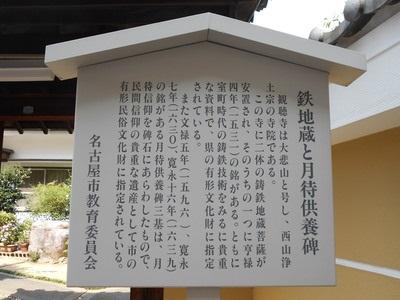 鉄地蔵と月待供養碑
観聴寺は大悲山と号し、西山浄
土宗の寺院である。
この寺に二体の鋳鉄地蔵菩薩が
安置され、そのうちの一つに亨禄
四年(一五三一)の銘がある。ともに
室町時代の鋳鉄技術をみるに貴重
な資料で、県の有形文化財に指定
されている。
また文禄五年(一五九六)、寛永
七年(一六三〇)、寛永十六年(一六三九)
の銘がある月待供養碑三基は、月
待信仰を碑石にあらわしたもので、
民間信仰の貴重な遺産として市の
有形民俗文化財に指定されている。
名古屋市教育委員会